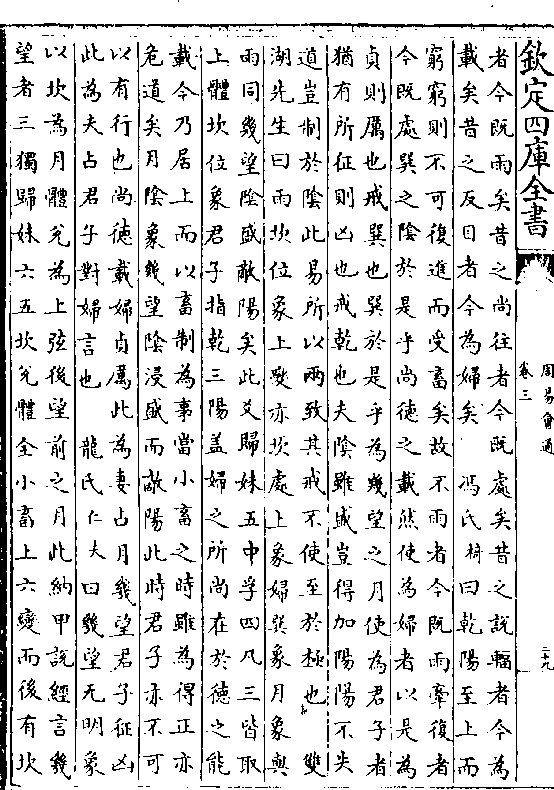 欽定四庫全書
周易會通
卷三
三九
者今既雨矣昔之尚往者今既處矣昔之説輻者今為
載矣昔之反目者今為婦矣　馮氏椅曰乾陽至上而
窮窮則不可復進而受畜矣故不雨者今既雨牽復者
今既處巽之陰於是乎尚德之載然使為婦者以是為
貞則厲也戒巽也巽於是乎為幾望之月使為君子者
猶有所征則凶也戒乾也夫陰雖盛豈得加陽陽不失
道豈制於陰此易所以兩致其戒不使至於極也　雙
湖先生曰雨坎位象上變亦坎處上象婦巽象月象與
雨同幾望陰盛敵陽矣此爻歸妹五中孚四凡三皆取
上體坎位象君子指乾三陽蓋婦之所尚在於德之能
載今乃居上而以畜制為事當小畜之時雖為得正亦
危道矣月陰象幾望陰浸盛而敵陽此時君子亦不可
以有行也尚德載婦貞厲此為妻占月幾望君子征凶
此為夫占君子對婦言也　龍氏仁夫曰幾望无明象
以坎為月體兌為上弦後望前之月此納甲説經言幾
望者三獨歸妹六五坎兌體全小畜上六變而後有坎